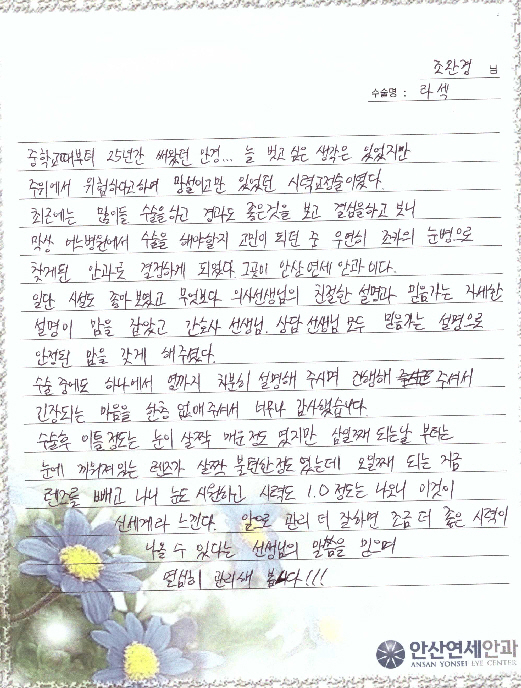 조완경 님
수술명 : 라섹
중학교때부터 25년간 써왔던 안경... 늘 벗고 싶은 생각은 있었지만
주위에서 위험하다고하여 망설이고만 있었던 시력교정술이였다.
최근에는 많이들 수술을하고 결과도 좋은것을 보고 결심을하고 보니
막상 어느병원에서 수술을 해야할지 고민이 되던 중 우연히 조카의 눈병으로
찾게된 안과로 결정하게 되었다. 그곳이 안산연세 안과이다.
일단 시설도 좋아 보였고 무엇보다 의사선생님의 친절한 설명과 믿음가는 자세한
설명이 맘을 잡았고 간호사 선생님. 상담 선생님 모두 믿음가는 설명으로
안정된 맘을 갖게 해주셨다.
수술 중에도 하나에서 열까지 차분히 설명해 주시며 진행해 주셔서
긴장되는 마음을 한층 없애 주셔서 너무나 감사했습니다.
수술후 이틀정도는 눈이 살짝 매운정도 였지만 삼일째 되는날 부터는
눈에 끼워져있는 렌즈가 살짝 불편한정도 였는데 오일째 되는 지금
렌즈를 빼고 나니 눈도 시원하고 시력도 1.0 정도는 나오니 이것이
신세계라 느낀다. 앞으로 관리 더 잘하면 조금 더 좋은 시력이
나올 수 있다는 선생님의 말씀을 믿으며
열심히 관리해 봅니다!!!
안산연세안과
ANSAN YONSEI EYE CENTER